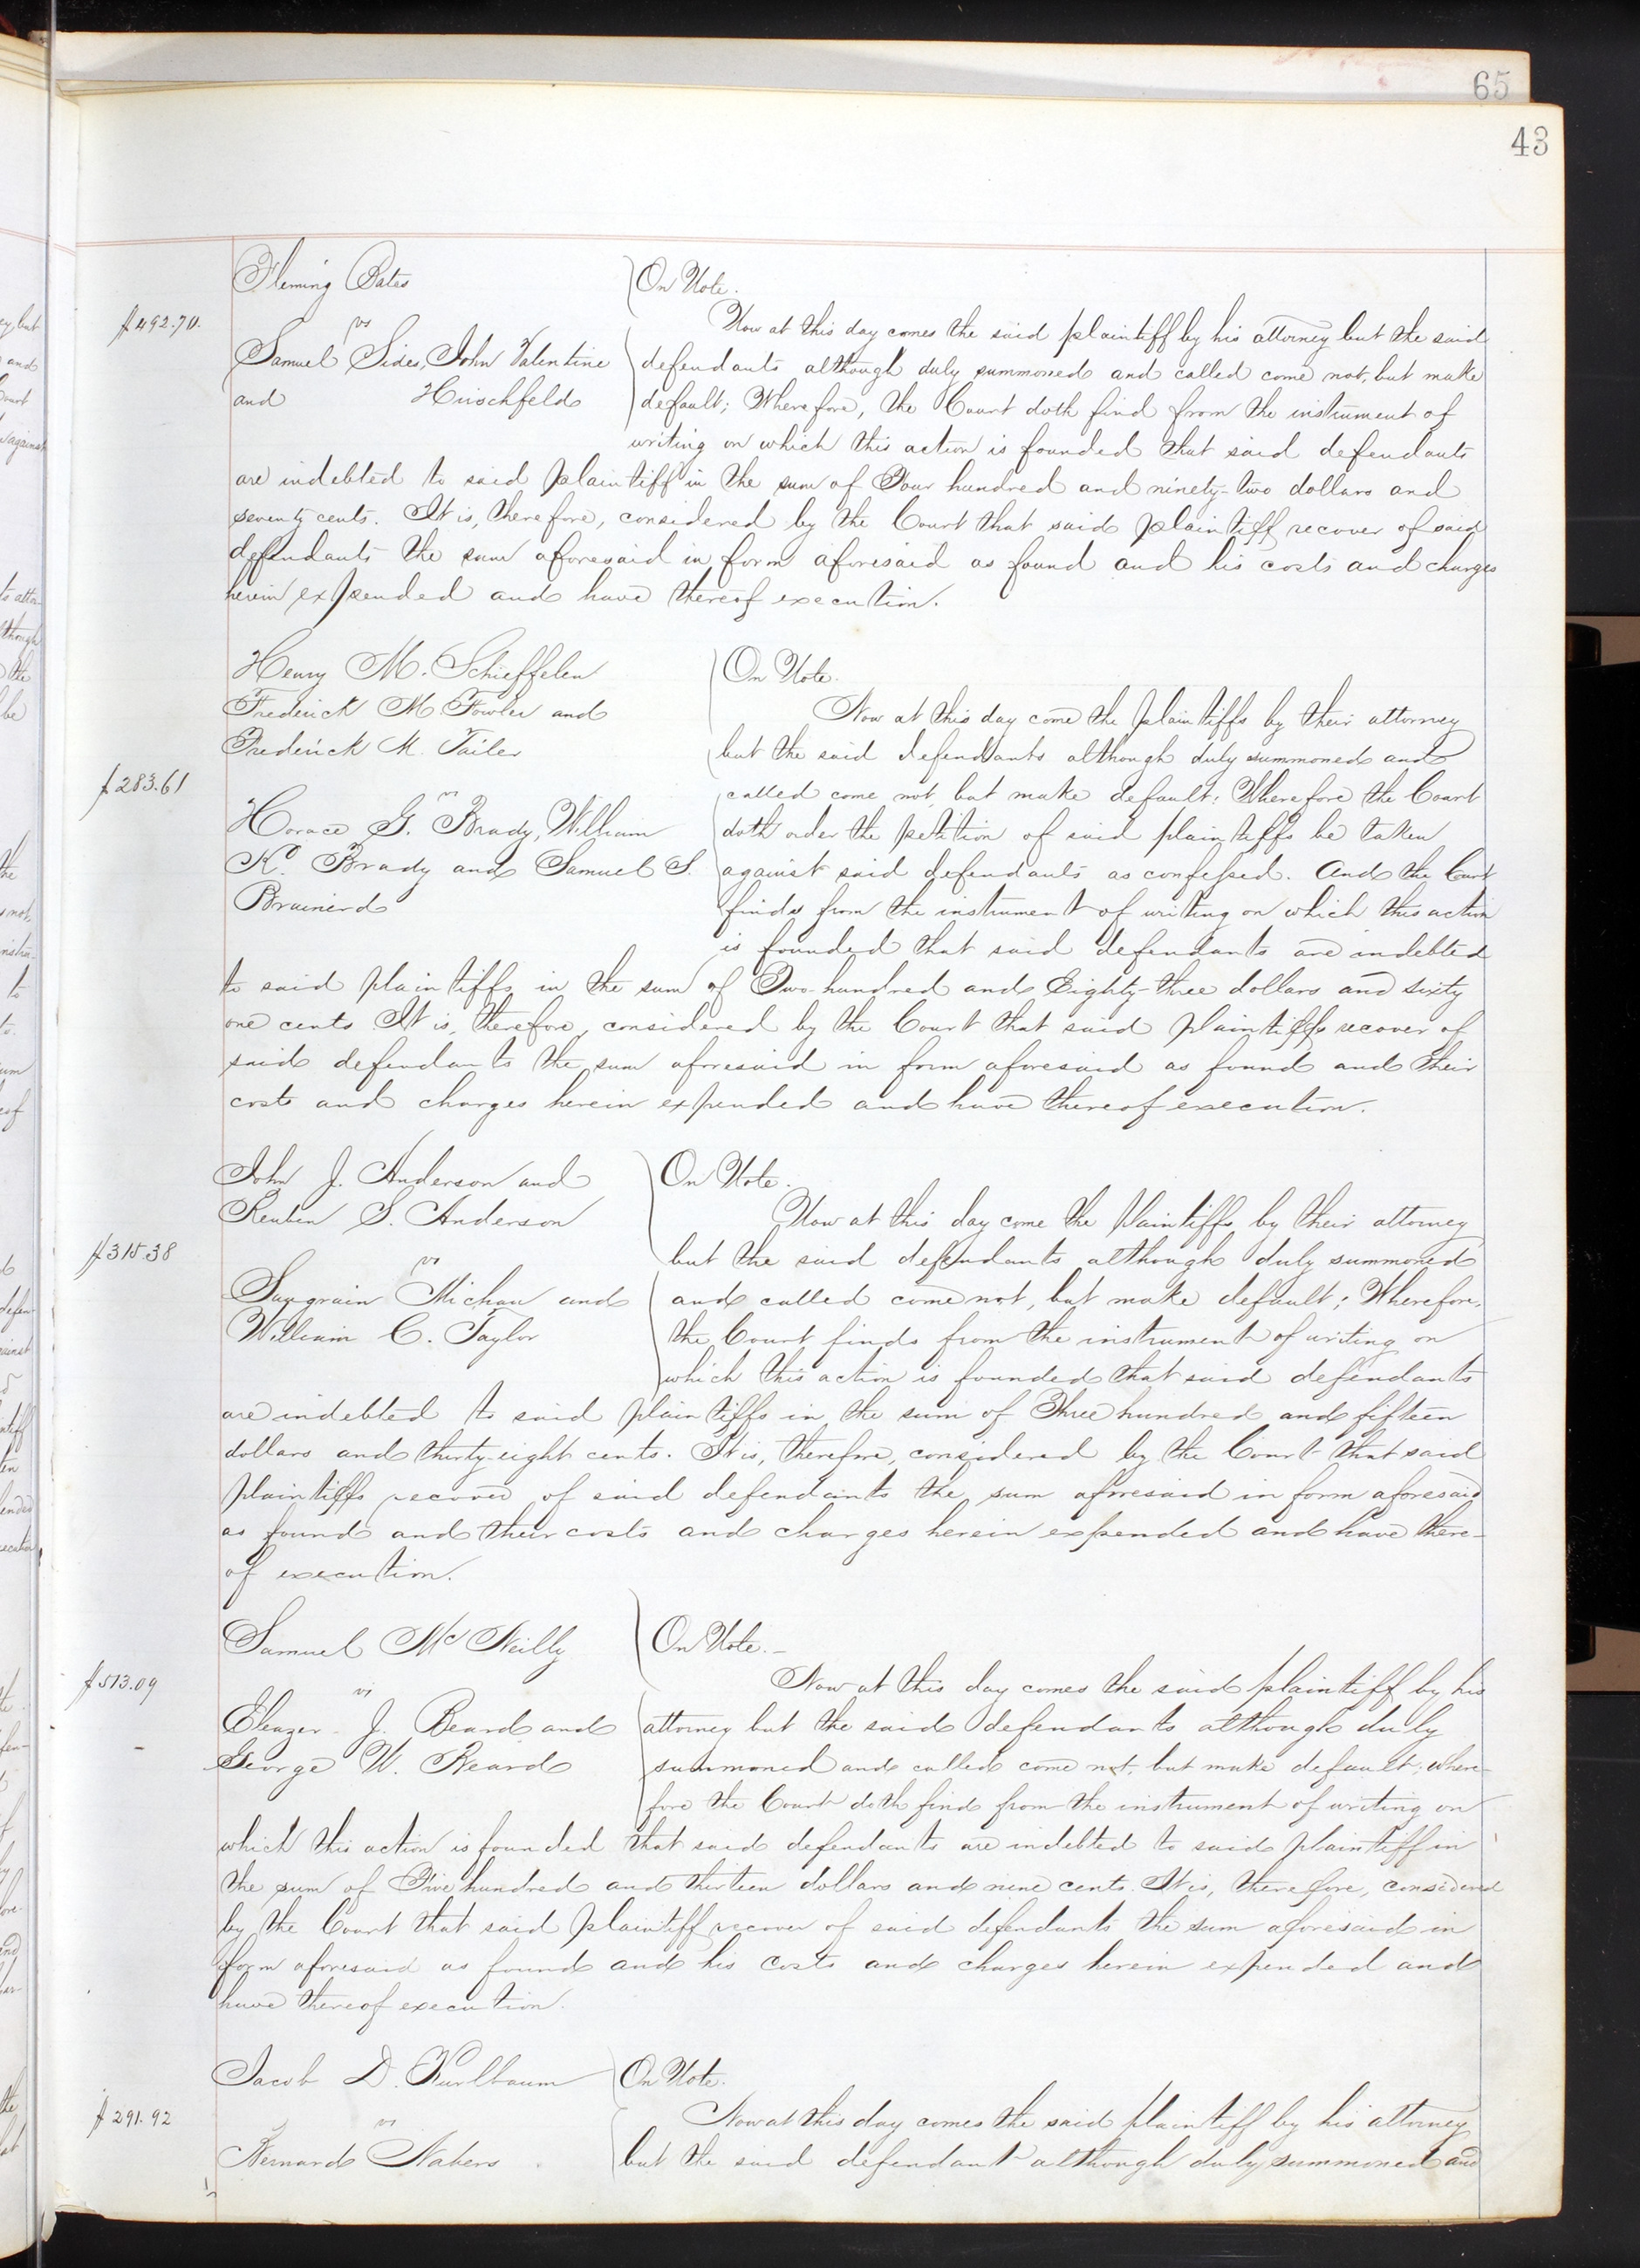 65
43
Fleming Bates
On Note.
$492.70.
vs
Now at this day comes the said plaintiff by his attorney but the said
Samuel Sides, John Valentine
defendants although duly summoned and called come not, but make
and Hirschfeld
default; Wherefore, the Court doth find from the instrument of
writing on which this action is founded that said defendants
are indebted to said plaintiff in the sum of Four hundred and ninety-two dollars and
seventy cents. It is, therefore, considered by the Court that said plaintiff recover of said
defendants the sum aforesaid in form aforesaid as found and his costs and charges
herein expended and have thereof execution.
Henry M. Schieffelin
On Note.
Frederick M. Fowler and
Now at this day come the plaintiffs by their attorney
Frederick M. Tailer
but the said defendants although duly summoned and
$283.61
vs
called come not, but make default: Wherefore the Court
Horace G. Brady, William
doth order the petition of said plaintiffs be taken
K. Brady and Samuel S.
against said defendants as confessed. And the Court
Brainerd
finds from the instrument of writing on which this action
is founded that said defendants are indebted
to said plaintiffs in the sum of Two-hundred and Eighty-three dollars and sixty
one cents It is, therefore, considered by the Court that said plaintiffs recover of
said defendants the sum aforesaid in form aforesaid as found and their
costs and charges herein expended and have thereof execution.
John J. Anderson and
On Note.
Reuben S. Anderson
Now at this day come the plaintiffs by their attorney
$315.38
vs
but the said defendants although duly summoned
Saugrain Michau and
and called come not, but make default; Wherefore,
William C. Taylor
the Court finds from the instrument of writing on
which this action is founded that said defendants
are indebted to said plaintiffs in the sum of Three hundred and fifteen
dollars and thirty-eight cents. It is, therefore, considered by the Court that said
plaintiffs recover of said defendants the sum aforesaid in form aforesaid
as found and their costs and charges herein expended and have there-
of execution.
Samuel McNeilly
On Note.-
$513.09
vs
Now at this day comes the said plaintiff by his
Eleazer J. Beard and
attorney but the said defendants although duly
George W. Beard
summoned and called come not, but make default; where-
fore the Court doth find from the instrument of writing on
which this action is founded that said defendants are indebted to said plaintiff in
the sum of Five hundred and thirteen dollars and nine cents. It is, therefore, considered
by the Court that said plaintiff recover of said defendants the sum aforesaid in
form aforesaid as found and his costs and charges herein expended and
have thereof execution.
Jacob D.
On Note.
$291.92
vs
Now at this day comes the said plaintiff by his attorney
Bernard
but the said defendant although duly summoned and